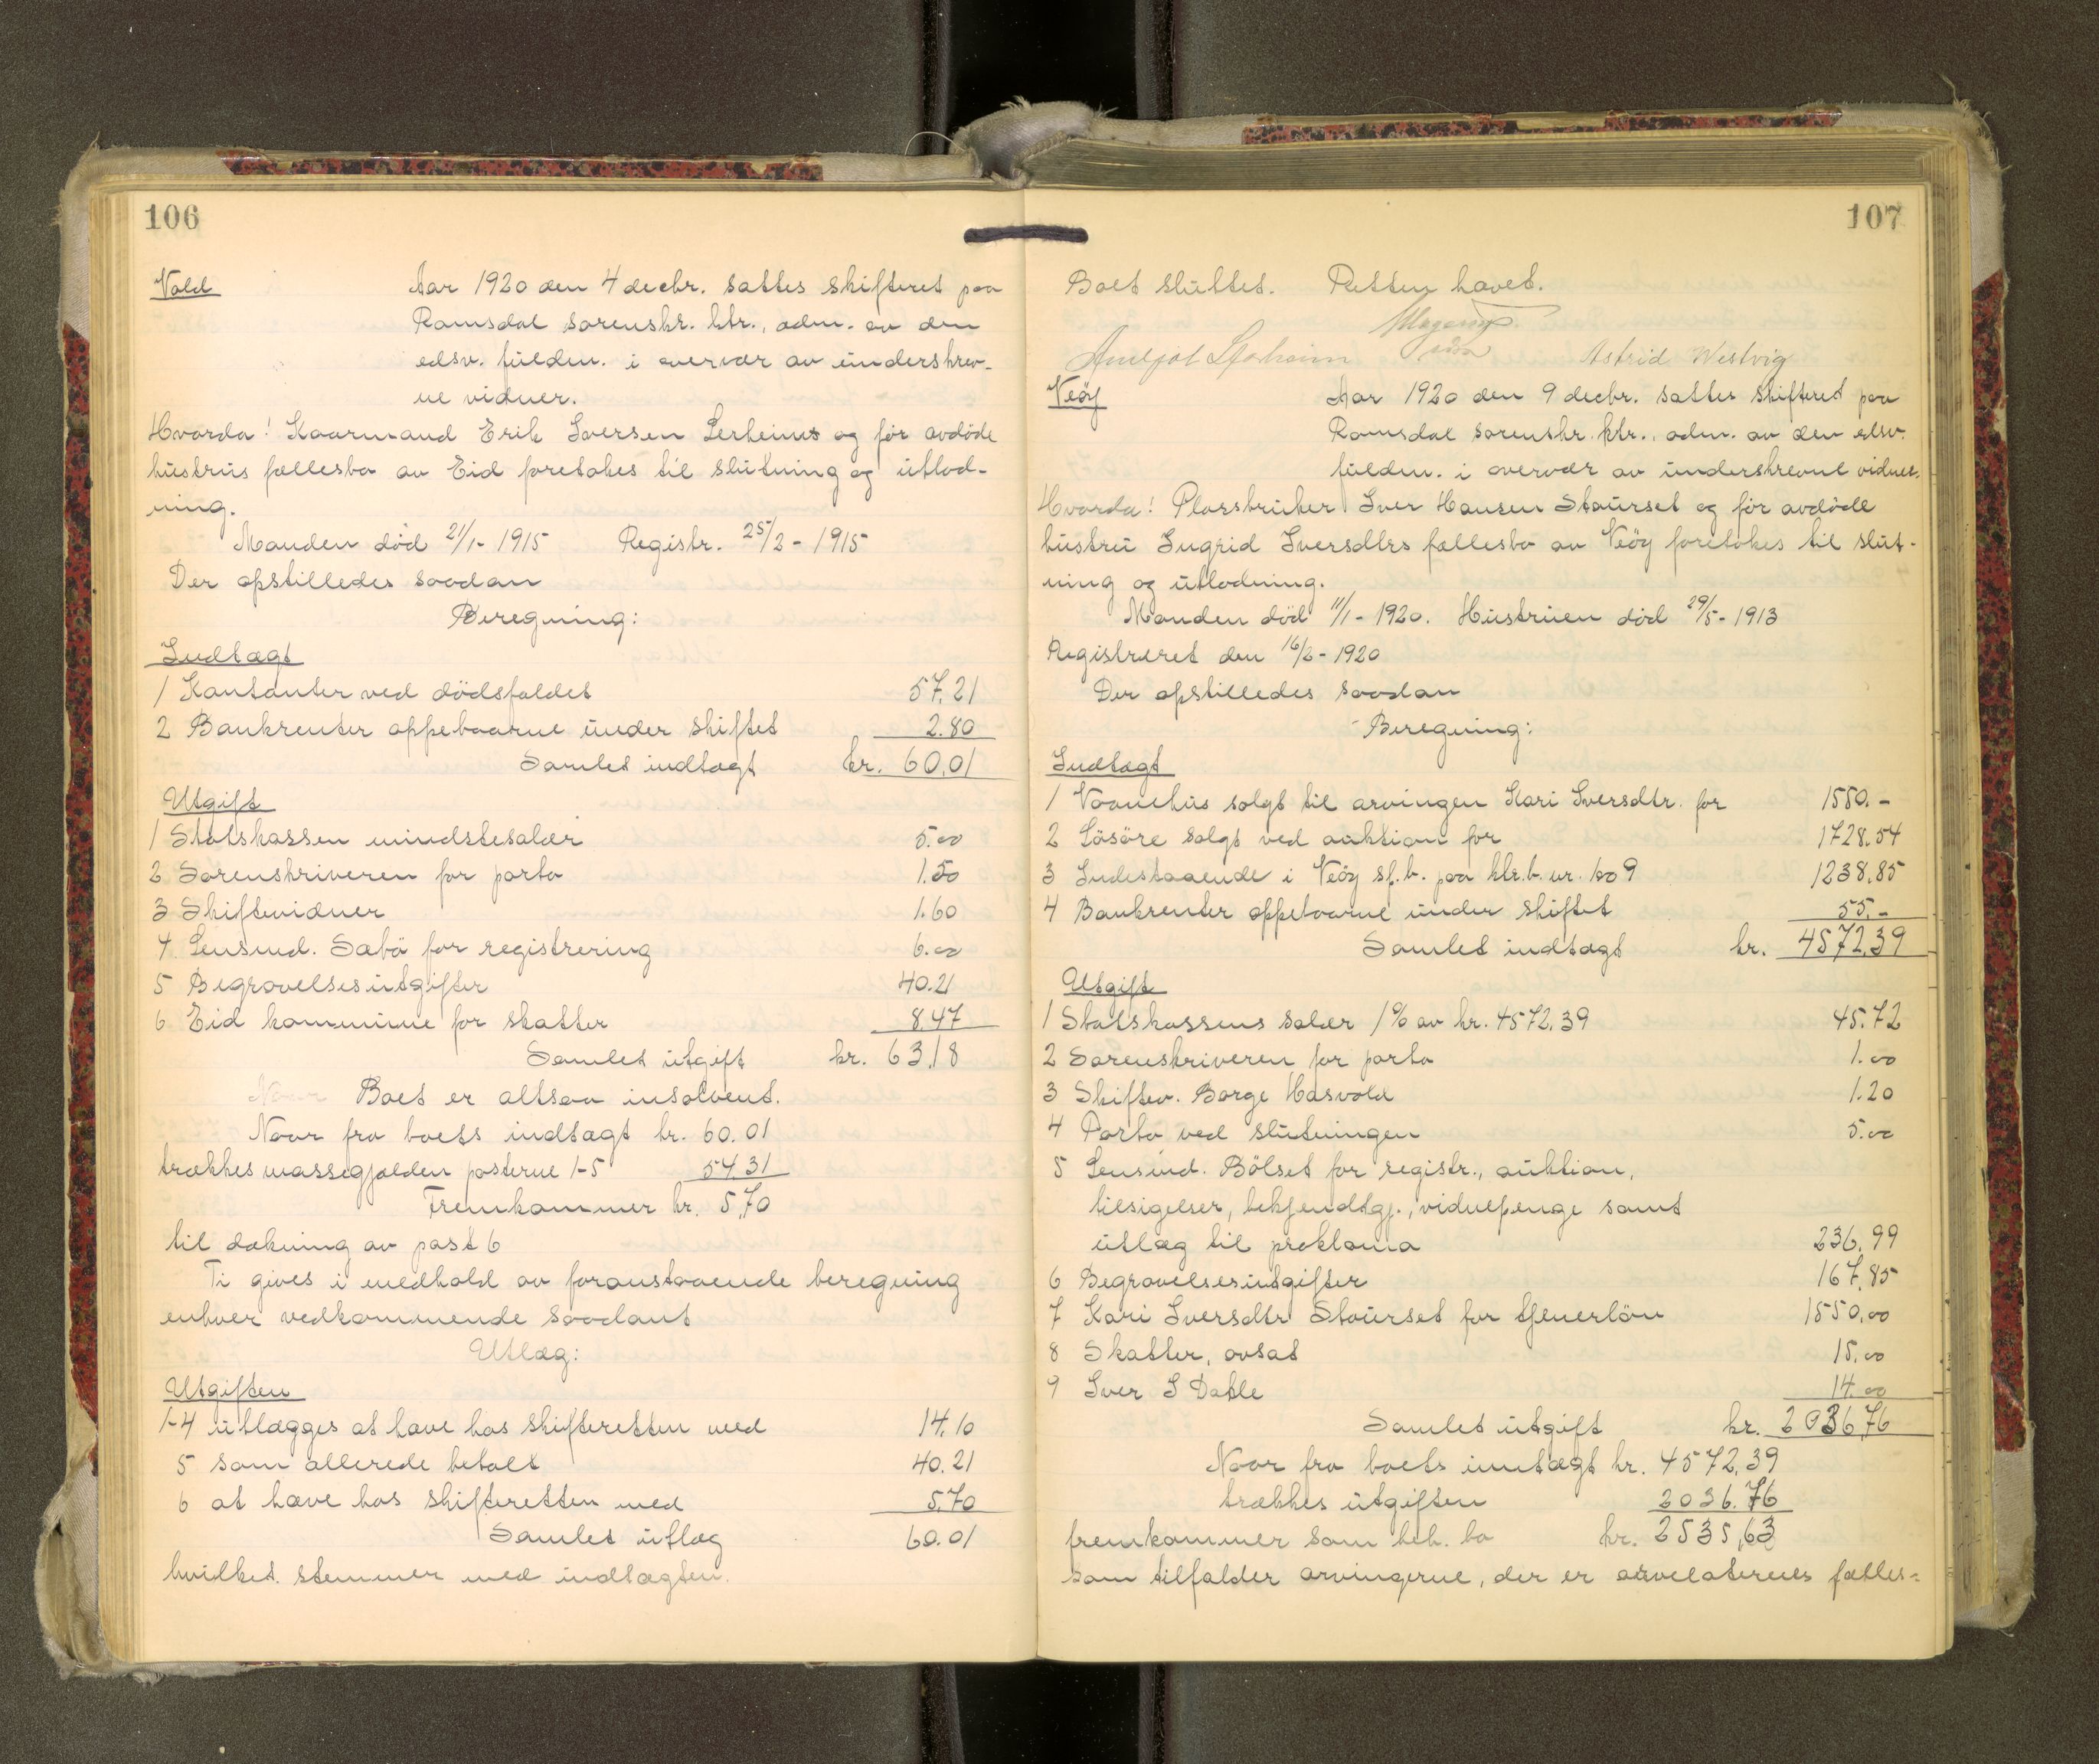 106
Vold
Aar 1920 den 4 decbr. sattes skifteret paa
Romsdal sorenskr. ktr., adm. av den
edsv. fuldm. i overvær av underskrev-
ne vidner.
Hvorda! Kaarmand Erik Iversen Lerheims og før avdøde
hustrus fællesbo av Eid foretokes til slutning og utlod-
ning.
Manden död 21/1- 1915 Registr. 25/2 - 1915
Der opstilledes saadan
Beregning:
Indtægt
1 Kontanter ved dödsfaldet 57,21
2 Bankrenter oppebaarne under skiftet 2.80
Samlet indtægt kr. 60,01
Utgift
1 Statskassen mindstesalær 5.00
2 Sorenskriveren for porto 1.50
3 Skiftevidner 1.60
4 Lensmd. Sæbö for registrering 6.00
5 Begravelsesutgifter 40.21
6 Eid kommune for skatter 8.47
Samlet utgift kr. 63,18
Naar Boet er altsaa insolvent.
Naar fra boets indtægt kr. 60.01
trækkes massegjælden posterne 1-5 54.31
Fremkommer kr. 5,70
til dækning av post 6
Ti gives i medhold av foranstaaende beregning
enhver vedkommende saadant
Utlæg:
Utgiften
1-4 utlægges at hæve hos skifteretten med 14,10
5 som allerede betalt 40.21
6 at hæve hos skifteretten med 5,70
Samlet utlæg 60.01
hvilket stemmer med indtægten.
107
Boet sluttet. Retten hævet.
Astrid Westvig
Veöy
Aar 1920 den 9 decbr. sattes skifteret paa
Romsdal sorenskr. ktr., adm. av den edsv.
fuldm. i overvær av underskrevne vidner.
Hvorda! Plassbruker Iver Hansen Staurset og før avdöde
hustru Ingrid Iversdtrs fællesbo av Veöy foretokes til slut-
ning og utlodning.
Manden död 11/1 - 1920. Hustruen död 29/5 - 1913
Registreret den 16/2 - 1920
Der opstilledes saadan
Beregning:
Indtægt
1 Vaanehus solgt til arvingen Kari Iversdtr. for 1550.-
2 Lösöre solgt ved auktion for 1728.54
3 Indestaaende i Veöy sp.b. paa ktr.b. nr. 1009 1238.85
4 Bankrenter oppebaarne under skiftet 55.-
Samlet indtægt kr. 4572,39
Utgift
1 Statskassens salær 1% av kr. 4572,39 45.72
2 Sorenskriveren for porto 1.00
3 Skiftev. Borge Hasvold 1.20
4 Porto ved slutningen 5.00
5 Lensmd. Bölset for registr., auktion,
tilsigelser, bekjendtgj., vidnepenge samt
utlæg til proklama 236,99
6 Begravelsesutgifter 167,85
7 Kari Iversdtr Staurset for tjenerlön 1550,00
8 Skatter, avsat 15.00
9 Iver I Dahle 14.00
Samlet utgift kr. 2036,76
Naar fra boets inntægt kr. 4572,39
trækkes utgiften 2036.76
fremkommer som beh. bo kr. 2535,63
som tilfalder arvingerne, der er arvelaternes fælles=